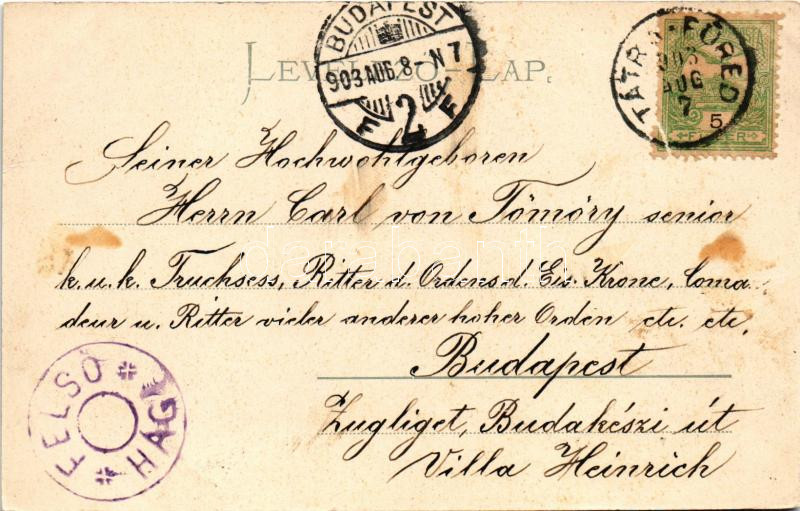 LEVELEZŐ-LAP.
BUDAPEST
903 AUG. 8 - N 7
F 2 F
TÁTRA-FÜRED
903
AUG
7
5
FILLÉR
Seiner Hochwohlgeboren
Herrn Carl von Tömöry senior
k. u. k. Truchsess, Ritter d. Ordens d. Eis. Krone, Coma-
deur u. Ritter vieler anderer hoher Orden etc. etc.
Budapest
Zugliget, Budakészi út
Villa Heinrich
FELSŐ HÁGI